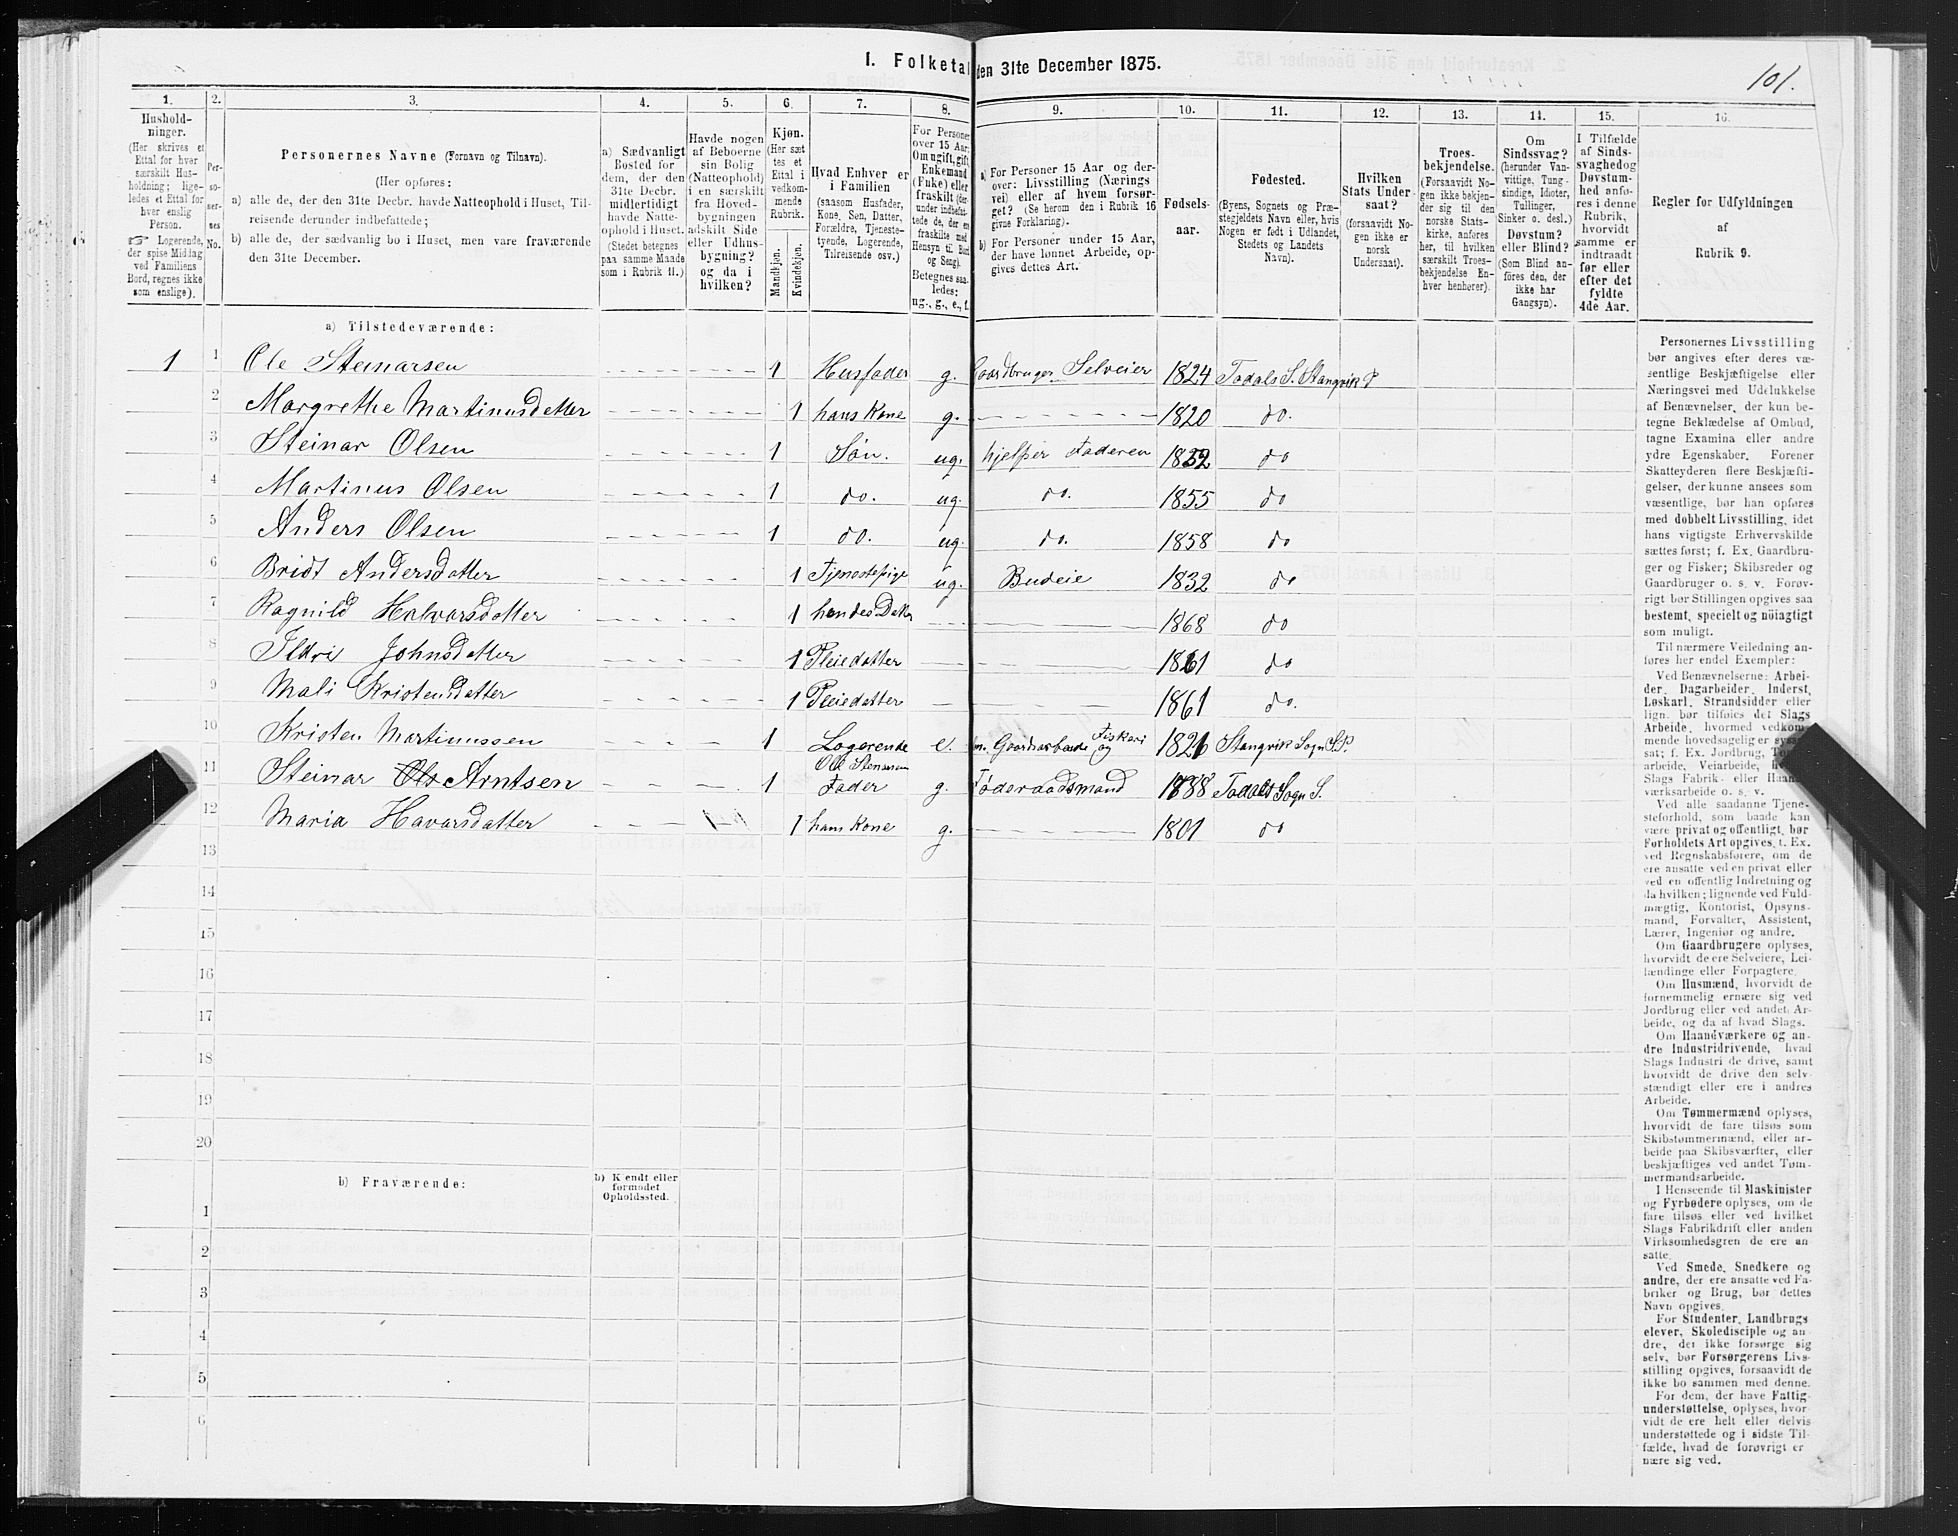 1. Folketal den 31te December 1875.
101.
1. 2. 3. 4. 5. 6. 7. 8. 9. 10. 11. 12. 13. 14. 15. 16.
Husholdninger.
(Her skrives et
Ettal for hver
særskilt Husholdning; ligeledes et Ettal for
hver enslig
Person.
☞ Logerende,
der spise Middag
ved Familiens
Bord, regnes ikke
som enslige).
Personernes No.
Personernes Navne (Fornavn og Tilnavn).
(Her opføres:
a) alle de, der den 31te Decbr. havde Natteophold i Huset, Tilreisende derunder indbefattede;
b) alle de, der sædvanlig bo i Huset, men vare fraværende
den 31te December.
a) Sædvanligt
Bosted for
dem, der den
31te Decbr.
midlertidigt
havde Natteophold i Huset.
(Stedet betegnes
paa samme Maade
som i Rubrik 11.)
Havde nogen
af Beboerne
sin Bolig
(Natteophold)
i en særskilt
fra Hovedbygningen
adskilt Side
eller Udhusbygning?
og da i
hvilken?
Kjøn.
(Her sættes et
Ettal i
vedkommende
Rubrik.
Mandkjøn.
Kvindekjøn.
Hvad Enhver er
i Familien
(saasom Husfader,
Kone, Søn, Datter,
Forældre, Tjenestetyende, Logerende,
Tilreisende osv.)
For Personer
over 15 Aar:
Om ugift, gift,
Enkemand
(Enke) eller
fraskilt (derunder indbefattede de, der en
fraskilte med
Hensyn til Bord
og Seng).
Betegnes saaledes:
ug., g., e., f.
a) For Personer 15 Aar og derover: Livsstilling (Næringsvei) eller af hvem forsørget? (Se herom den i Rubrik 16
givne Forklaring).
b) For Personer under 15 Aar,
der have lønnet Arbeide, opgives dettes Art.
Fødselsaar.
Fødested.
(Byens, Sognets og Præstegjeldets Navn eller, hvis
Nogen er født i Udlandet,
Stedets og Landets
Navn).
Hvilken
Stats Undersaat?
(forsaavidt Nogen ikke er
norsk
Undersaat).
Troesbekjendelse.
(Forsaavidt Nogen ikke bekjender sig til den
norske Statskirke, anføres
her, til hvilken
særskilt Troesbekjendelse Enhver henhører).
Om
Sindssvag?
(herunder Vanvittige, Tungsindige, Idioter,
Tullinger,
Sinker o. desl.)
Døvstum?
eller Blind?
(Som Blind anføres den, der
ikke har
Gangsyn).
I Tilfælde
af Sindssvaghed og
Døvstumhed anføres i denne
Rubrik,
hvorvidt
samme er
indtraadt
før eller
efter det
fyldte
4de Aar.
Regler for Udfyldningen
af
Rubrik 9.
a) Tilstedeværende:
1 1 Ole Steinarsen 1 Husfader g. Gaardbruger Selveier 1824 Todals S. Stangvik P
2 Margrethe Martinusdatter 1 hans Kone g. 1820 do.
3 Steinar Olsen 1 Søn. ug. hjelper Faderen 1852 do
4 Martinus Olsen 1 do. ug. do. 1855 do
5 Anders Olsen 1 do. ug. do. 1858 do
6 Bridt Andersdatter 1 Tjenestepige ug. Budeie 1832 do
7 Ragnild Halvarsdatter 1 hendes Datter 1868 do
8 Ildri Johnsdatter 1 Pleiedatter 1861 do
9 Mali Kristensdatter 1 Pleiedatter 1861 do.
10 Kristen Martinussen 1 Logerende e. Gaardsarbeide og Fiskeri 1826 Stangvik Sogn S.P.
11 Steinar Ols Arntsen 1 Ole Stenarsens Fader g. Føderaadsmand 1788 Todals Sogn S.
12 Maria Havarsdatter 1 hans Kone g. 1801 do
13
14
15
16
17
18
19
20
b) Fraværende:
b) Kjendt eller
formodet
Opholdssted.
1
2
3
4
5
6
Personernes Livsstilling
bør angives efter deres væsentlige Beskjæftigelse eller
Næringsvei med Udelukkelse
af Benævnelser, der kun betegne Beklædelse af Ombud,
tagne Examina eller andre
ydre Egenskaber. Forener
Skatteyderen flere Beskjæftigelser, der kunne ansees som
væsentlige, bør han opføres
med dobbelt Livsstilling, idet
hans vigtigste Erhvervskilde
sættes først; f. Ex. Gaardbruger og Fisker; Skibsreder og
Gaardbruger o. s. v. Forøvrigt bør Stillingen opgives saa
bestemt, specielt og nöiagtigt
som muligt.
Til nærmere Veiledning anføres her endel Exempler:
Ved Benævnelserne: Arbeider, Dagarbeider, Inderst,
Løskarl, Strandsidder eller
lign. bør tilføies det Slags
Arbeide, hvormed vedkommende hovedsagelig er
sat; f. Ex. Jordbrug,
arbeide, Veiarbeide,
Slags Fabrik- eller
værksarbeide o. s. v.
Ved alle saadanne Tjenesteforhold, som baade kan
være privat og offentligt, bør
Forholdets Art opgives, t. Ex.
ved Regnskabsførere, om de
ere ansatte ved en privat eller
ved en offentlig Indretning og
da hvilken; lignende ved Fuldmægtig, Kontorist, Opsynsmand, Forvalter, Assistent,
Lærer, Ingeniør og andre.
Om Gaardbrugere oplyses,
hvorvidt de ere Selveiere, Leilændinge eller Forpagtere.
Om Husmænd, hvorvidt de
fornemmelig ernære sig ved
Jordbrug eller ved andet Arbeide, og da af hvad Slags.
Om Haandværkere og andre Industridrivende, hvad
Slags Industri de drive, samt
hvorvidt de drive den selvstændigt eller ere i andres
Arbeide.
Om Tømmermænd oplyses,
hvorvidt de fare tilsøs som
Skibstømmermænd, eller arbeide paa Skibsværfter, eller
beskjæftiges ved andet Tømmermandsarbeide.
I Henseende til Maskinister
og Fyrbødere oplyses, om de
fare tilsøs eller ved hvilket
Slags Fabrikdrift eller anden
Virksomhedsgren de ere ansatte.
Ved Smede, Snedkere og
andre, der ere ansatte ved Fabriker og Brug, bør dettes
Navn opgives.
For Studenter, Landbrugselever, Skoledisciple og andre, der ikke forsørge sig
selv, bør Forsørgerens Livsstilling opgives, forsaavidt de
ikke bo sammen med denne.
For dem, der have Fattigunderstøttelse, oplyses, hvorvidt de ere helt eller delvis
understøttede og i sidste Tilfælde, hvad de forøvrigt er
nære sig ved.